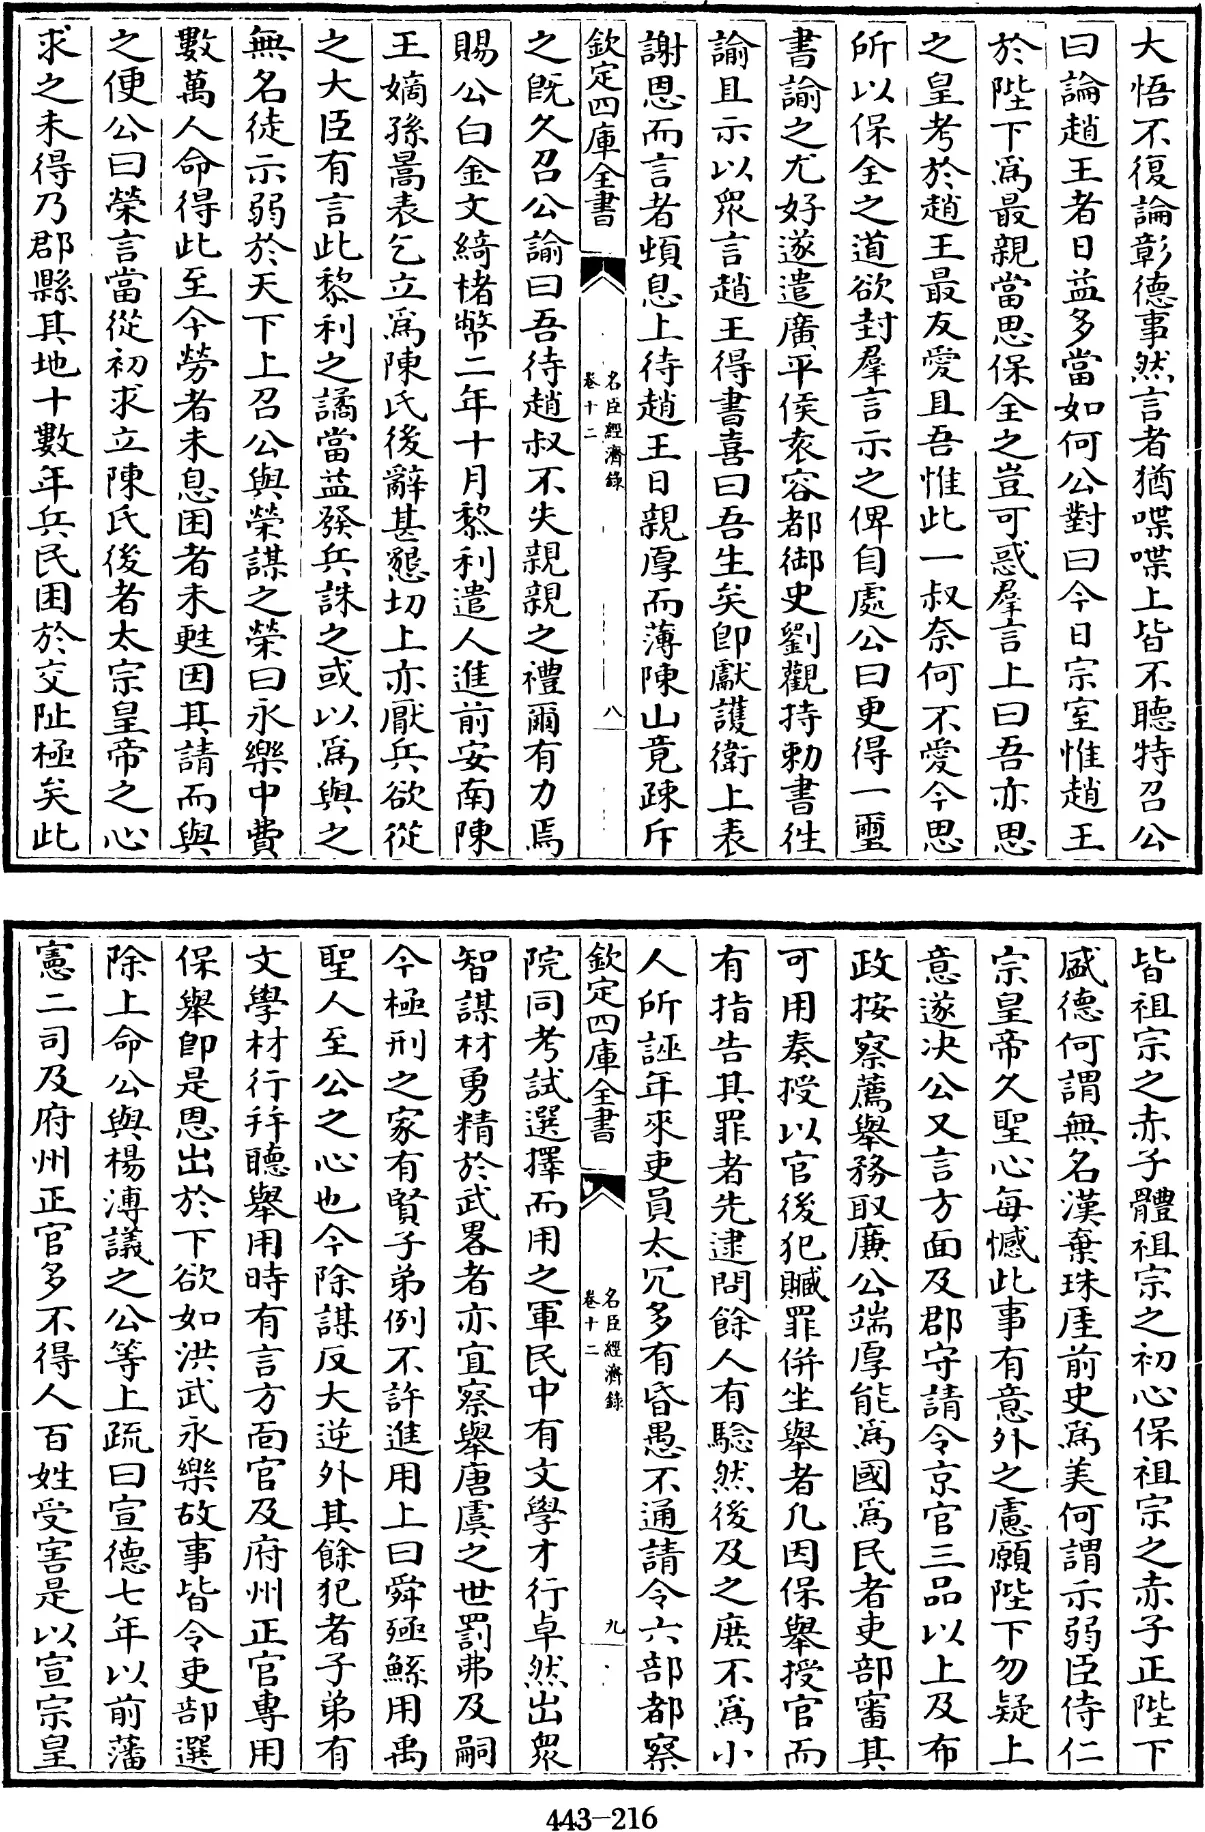 大悟不復論彰德事然言者猶喋喋上皆不聽特召公
曰論趙王者日益多當如何公對曰今日宗室惟趙王
於陛下為最親當思保全之豈可惑羣言上曰吾亦思
之皇考於趙王最友愛且吾惟此一叔奈何不愛今思
所以保全之道欲封羣言示之俾自處公曰更得一璽
書諭之尤好遂遣廣平侯袁容都御史劉觀持勅書往
諭且示以衆言趙王得書喜曰吾生矣即獻護衛上表
謝恩而言者頓息上待趙王日親厚而薄陳山竟疎斥
欽定四庫全書
名臣經濟錄
卷十二
八
之既久召公諭曰吾待趙叔不失親親之禮爾有力焉
賜公白金文綺楮幣二年十月黎利遣人進前安南陳
王嫡孫暠表乞立為陳氏後辭甚懇切上亦厭兵欲從
之大臣有言此黎利之譎當益發兵誅之或以為與之
無名徒示弱於天下上召公與榮謀之榮曰永樂中費
數萬人命得此至今勞者未息困者未甦因其請而與
之便公曰榮言當從初求立陳氏後者太宗皇帝之心
求之未得乃郡縣其地十數年兵民困於交阯極矣此
皆祖宗之赤子體祖宗之初心保祖宗之赤子正陛下
盛德何謂無名漢棄珠厓前史為美何謂示弱臣侍仁
宗皇帝久聖心每憾此事有意外之慮願陛下勿疑上
意遂决公又言方面及郡守請令京官三品以上及布
政按察薦舉務取廉公端厚能為國為民者吏部審其
可用奏授以官後犯贓罪併坐舉者凡因保舉授官而
有指告其罪者先逮問餘人有驗然後及之庶不為小
人所誣年來吏員太冗多有昏愚不通請令六部都察
欽定四庫全書
名臣經濟錄
卷十二
九
院同考試選擇而用之軍民中有文學才行卓然出衆
智謀材勇精於武畧者亦宜察舉唐虞之世罰弗及嗣
今極刑之家有賢子弟例不許進用上曰舜殛鯀用禹
聖人至公之心也今除謀反大逆外其餘犯者子弟有
文學材行幷聽舉用時有言方面官及府州正官專用
保舉即是恩出於下欲如洪武永樂故事皆令吏部選
除上命公與楊溥議之公等上疏曰宣德七年以前藩
憲二司及府州正官多不得人百姓受害是以宣宗皇
443-216